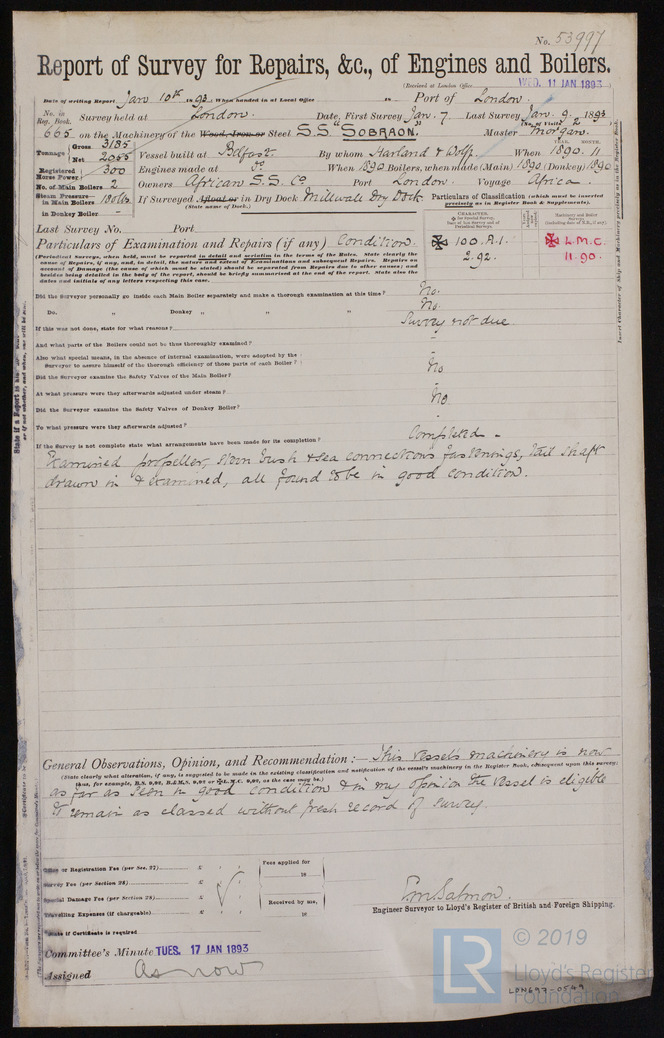 No. 53997
Report of Survey for Repairs, &c., of Engines and Boilers.
(Received at London Office WED. 11 JAN 1893)
Date of writing Report Jan 10th 1893 When handed in at Local Office 18 Port of London.
No. in Reg. Book. Survey held at London. Date, First Survey Jan. 7 Last Survey Jan. 9. 1893
(No. of Visits 2)
665 on the Machinery of the Wood, Iron or Steel S.S. "SOBRAON." Master Morgan.
Tonnage Gross 3185 Net 2055 Vessel built at Belfast. By whom Harland & Wolff. When 1890. 11
Registered Horse Power 300 Engines made at do When 1890 Boilers, when made (Main) 1890 (Donkey) 1890
No. of Main Boilers 2 Owners African S.S. Co Port London. Voyage Africa.
Steam Pressure in Main Boilers 180 lbs If Surveyed Afloat or in Dry Dock Millwall Dry Dock
(State name of Dock.)
in Donkey Boiler -
Particulars of Classification (which must be inserted precisely as in Register Book & Supplements).
Last Survey No. Port
✠ 100.A.1. 2.92.
✠ L.M.C. 11.90.
Particulars of Examination and Repairs (if any) Condition.
(Periodical Surveys, when held, must be reported in detail and seriatim in the terms of the Rules. State clearly the
cause of Repairs, if any, and, in detail, the nature and extent of Examinations and subsequent Repairs. Repairs on
account of Damage (the cause of which must be stated) should be separated from Repairs due to other causes; and
besides being detailed in the body of the report, should be briefly summarised at the end of the report. State also the
dates and initials of any letters respecting this case.
Did the Surveyor personally go inside each Main Boiler separately and make a thorough examination at this time? No.
Do. " Donkey " " " No.
If this was not done, state for what reasons? Survey not due
And what parts of the Boilers could not be thus thoroughly examined? -
Also what special means, in the absence of internal examination, were adopted by the
Surveyor to assure himself of the thorough efficiency of those parts of each Boiler? -
Did the Surveyor examine the Safety Valves of the Main Boiler? No
At what pressure were they afterwards adjusted under steam? -
Did the Surveyor examine the Safety Valves of Donkey Boiler? No
To what pressure were they afterwards adjusted? -
If the Survey is not complete state what arrangements have been made for its completion? Completed -
Examined propeller, stern bush & sea connections fastenings, tail shaft
drawn in & examined, all found to be in good condition.
General Observations, Opinion, and Recommendation:— This vessel's machinery is now
(State clearly what alteration, if any, is suggested to be made in the existing classification and notification of the vessel's machinery in the Register Book, consequent upon this survey;
as far as seen in good condition & in my opinion the vessel is eligible
to remain as classed without fresh record of survey.
Office or Registration Fee (per Sec. 27) £ : :
Survey Fee (per Section 28) £ : :
Special Damage Fee (per Section 28) £ : :
Travelling Expenses (if chargeable) £ : :
Fees applied for 18
Received by me, 18
State if Certificate is required
Engineer Surveyor to Lloyd's Register of British and Foreign Shipping.
Committee's Minute TUES. 17 JAN 1893
Assigned As now
LR
© 2019
Lloyd's Register
Foundation
LON697-0549